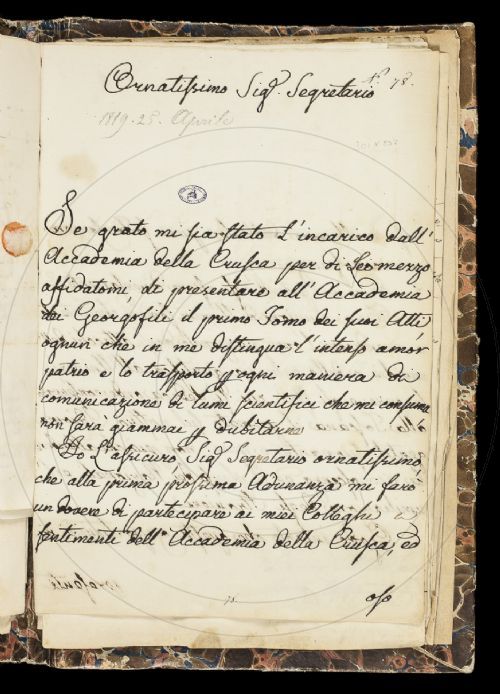 Ornatissimo Sig.r Segretario
N.° 78.
1819. 25. Aprile
Se grato mi sia stato l'incarico dall'
Accademia della Crusca per di Leo mezzo
affidatomi, di presentare all'Accademia
dei Georgofili il primo Tomo dei suoi Atti
ognun che in me distingua l'intenso amor
patrio e lo trasporto p ogni maniera di
comunicazione di lumi scientifici che mi consuma
non sarà giammai p dubitarne
Io L'assicuro, Sig.r Segretario ornatissimo,
che alla prima prossima Adunanza mi farò
un dovere di partecipare ai miei Colleghi i
sentimenti dell'Accademia della Crusca, ed
78.
oso